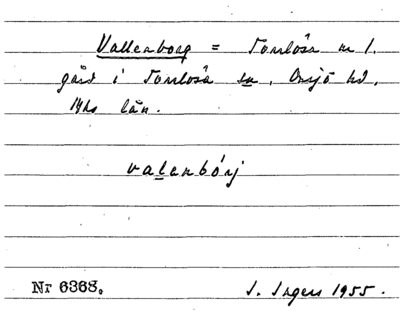 Vallenborg = Torrlösa nr 1.
gård i Torrlösa sn, Onsjö hd,
Mhs län.
valenbórj
Nr 6368. S. Ingers 1955.